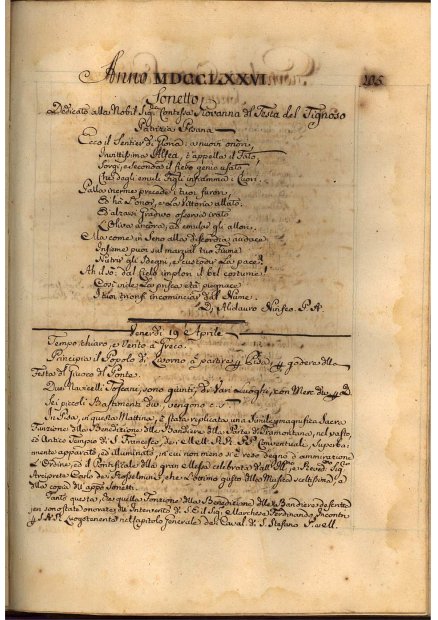 Anno MDCCLXXVI. 205
Sonetto
Dedicato alla Nobil Sig.ra Contessa Giovanna del Testa del Tignoso
Patrizia Pisana
Ecco il Sentier di Gloria: a nuovi onori,
Invittissima Alfea, t'appella il Fato,
Sorgi, e seconda il fiero genio usato
Che degli emuli Figli infiamma i Cuori.
Palla inerme precede i tuoi furori,
E hà l'onor, e la Vittoria allato.
E al
L'Oliva ancora, ad emular gli allori.
Ma come in Seno alla discordia audace
Insieme puoi sul marzial tuo
Nutrir gli Sdegni, e custodir la pace?
Ah il sò: dal Cielo implori il bel costume
Così vide la prisca età pugnace
I tuoi trionfi incominciar dal Nume.
Di Alidauro P. A.
Venerdì 19 Aprile
Tempo chiaro, e Vento a Greco.
Principia il Popolo di Livorno a partire p. Pisa, p. godere della
Festa del Giuoco del Ponte.
Due Navicelli Toscani, sono giunti, di Vari Luoghi, con Merc. di
Sei piccoli Bastimenti dei vengono
In Pisa, in questa Mattina, è stata replicata una Simile magnifica Sacra
Funzione alla Benedizione delle Bandiere della Parte di Tramontana, nel vasto
ed Antico Tempio di S. Francesco, de' M. R. PP. Conventuali, Superba-
mente apparato, ed illuminato, in cui non meno si rese degno d'ammirazione
L'Ordine, ed il Pontificale della gran Messa celebrata dall'Ill.mo, e Rev.mo Sig.
Arciprete Carlo che l'ottimo gusto della Musica sceltissima, e
alla copia di Sonetti.
Tanto questa, che quella Funzione della Benedizione delle Bandiere
jeri sono state onorate dall'Intervento di S. E. il Sig. Marchese Ferdinando Incontri
p. S. A. R. Luogotenente nel Capitolo Generale dei Caval. di S. Stefano P. e M.